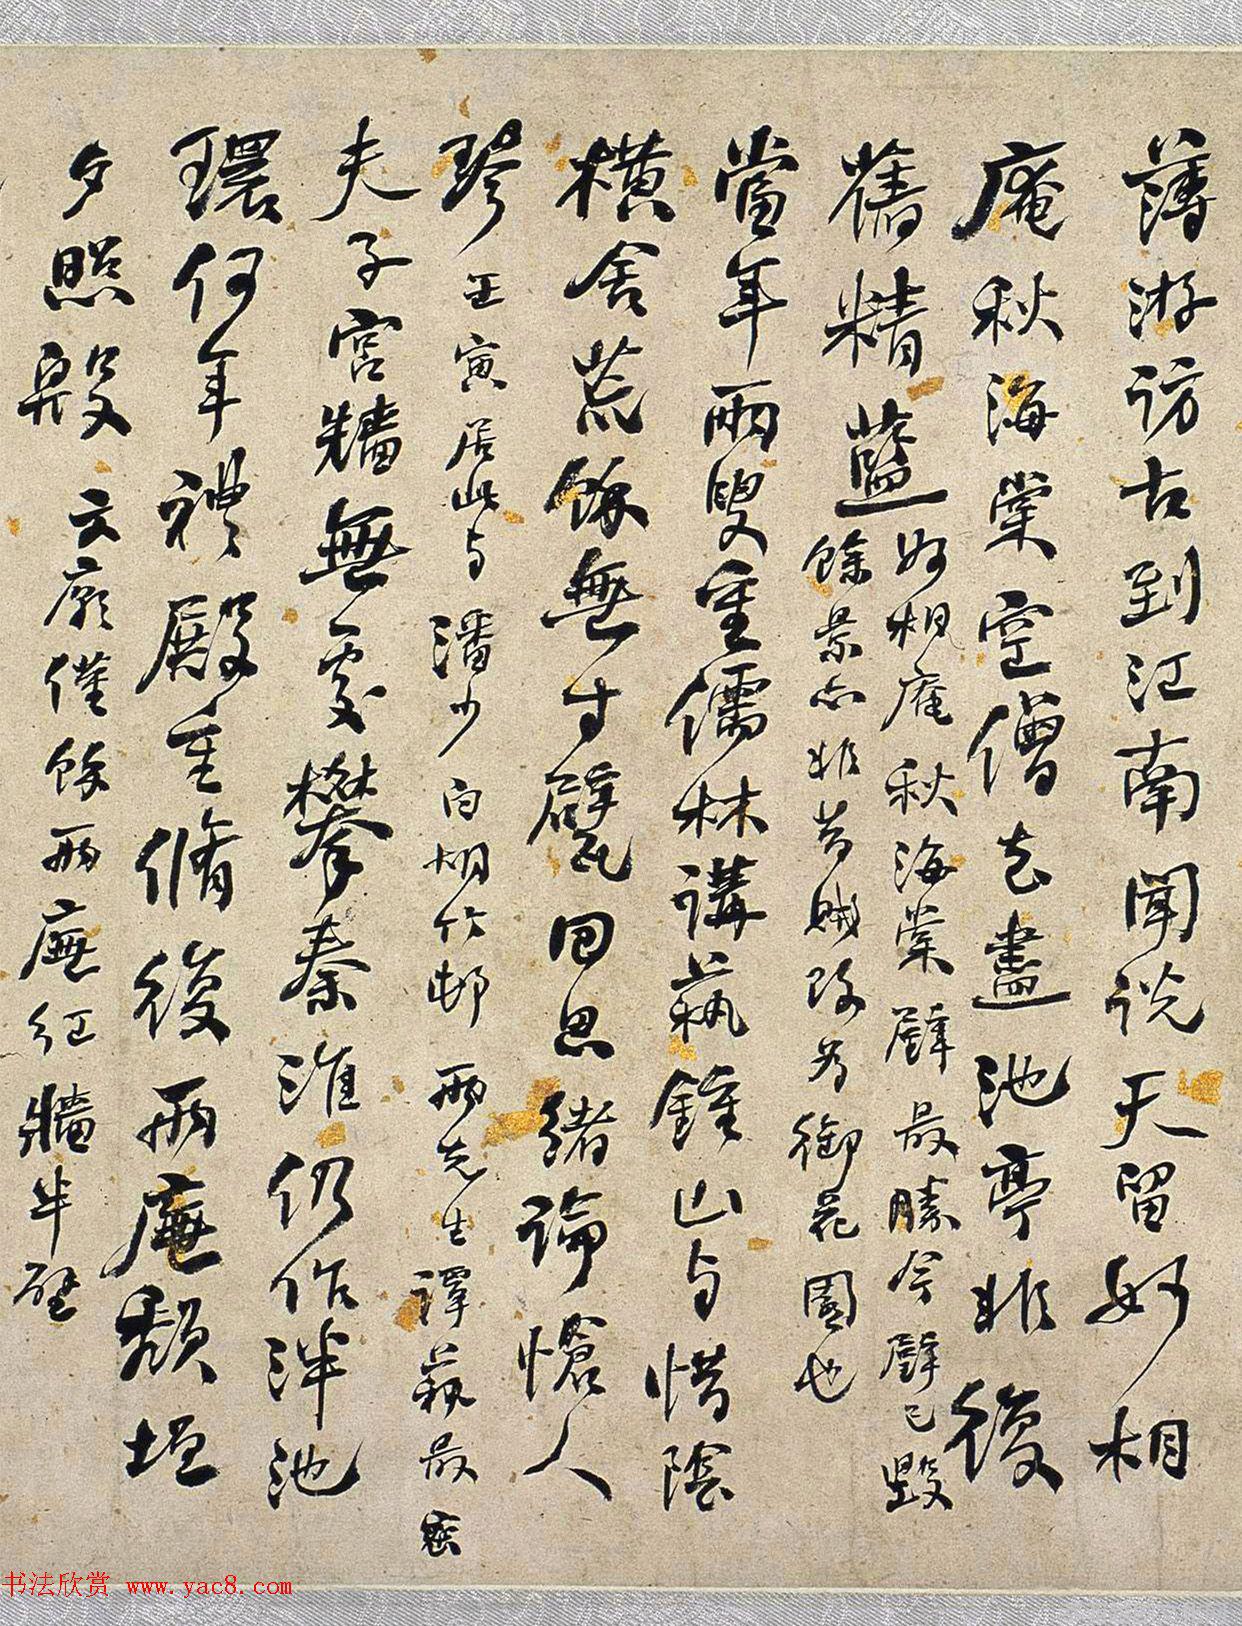 薄游訪古到江南聞說天留妙相
庵秋海棠空僧去盡池亭非復
舊精藍
妙相庵秋海棠壁最勝今壁已毀
餘景亦非昔賊改為御花園也
當年兩叟重儒林講蓺鍾山与惜陰
橫舍荒餘無寸甓回思緒論愴人
琴 壬寅居此与 潘少白胡竹邨 兩先生譚蓺最密
夫子宮牆無處攀秦淮仍作泮池
環何年禮殿重脩復兩廡頹垣
夕照殷 文廟僅餘兩廡紅牆半壁
书法欣赏 www.yac8.com